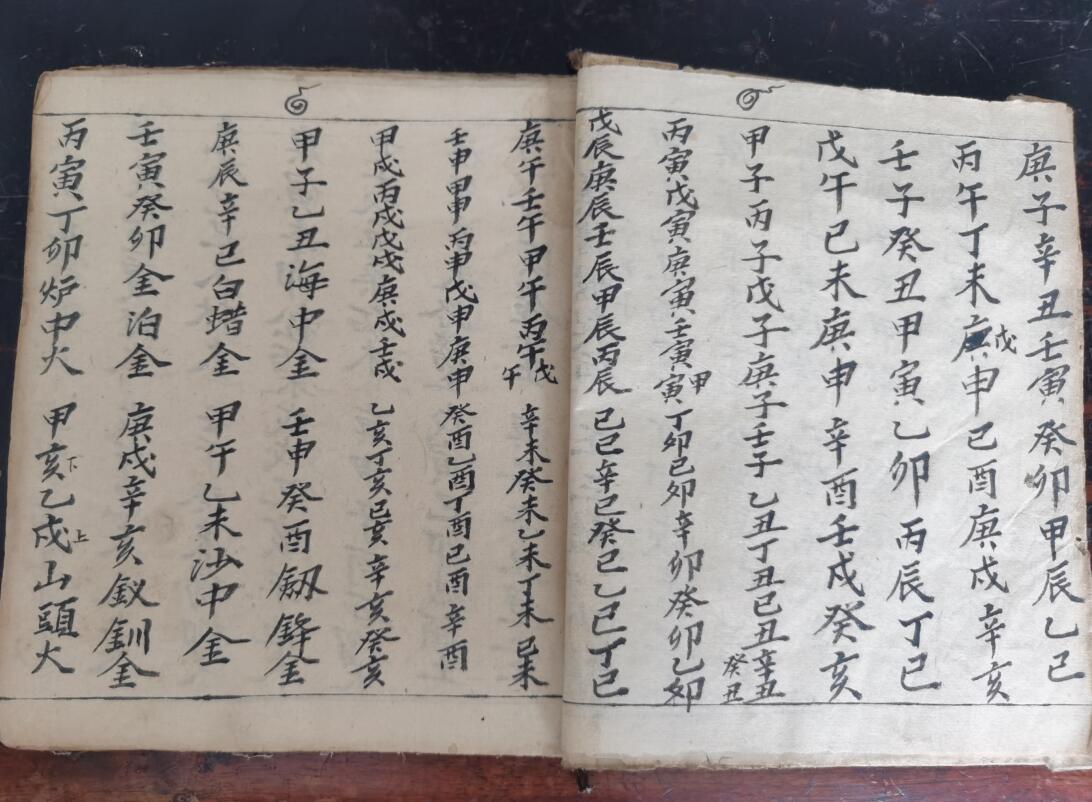 庚子辛丑壬寅癸卯甲辰乙巳
丙午丁未戊申己酉庚戌辛亥
壬子癸丑甲寅乙卯丙辰丁巳
戊午己未庚申辛酉壬戌癸亥
甲子丙子戊子庚子壬子乙丑丁丑己丑辛丑癸丑
丙寅戊寅庚寅壬寅甲寅丁卯己卯辛卯癸卯乙卯
戊辰庚辰壬辰甲辰丙辰己巳辛巳癸巳乙巳丁巳
庚午壬午甲午丙午戊午辛未癸未乙未丁未己未
壬申甲申丙申戊申庚申癸酉乙酉丁酉己酉辛酉
甲戌丙戌戊戌庚戌壬戌乙亥丁亥己亥辛亥癸亥
甲子乙丑海中金壬申癸酉剱鋒金
庚辰辛巳白蜡金甲午乙未沙中金
壬寅癸卯金泊金庚戌辛亥釵釧金
丙寅丁卯炉中火甲亥下乙戌上山頭火